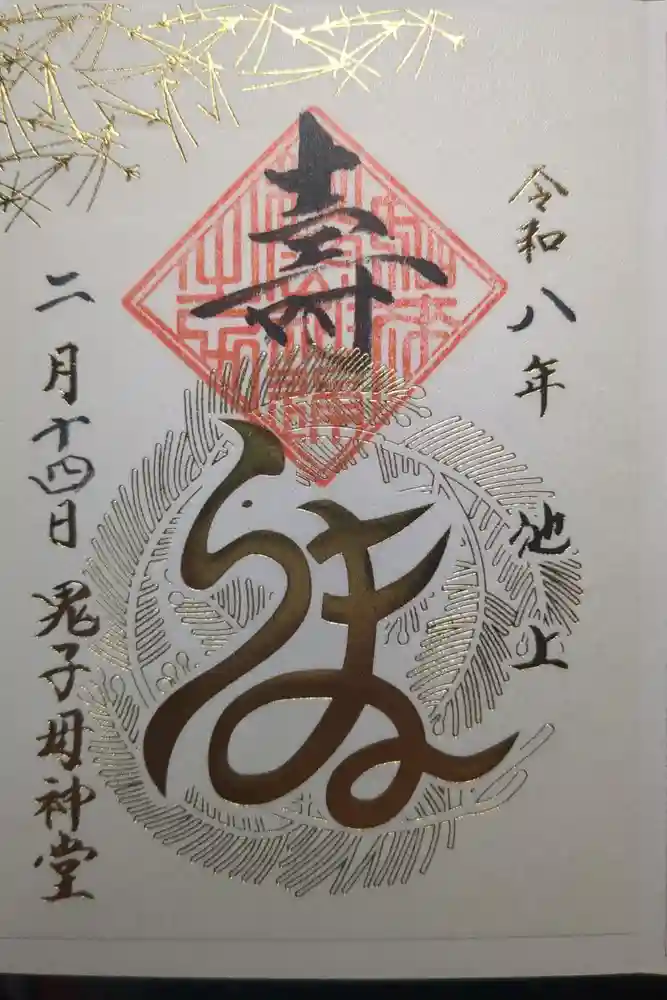 令和八年
池上
壽
二月十四日
鬼子母神堂